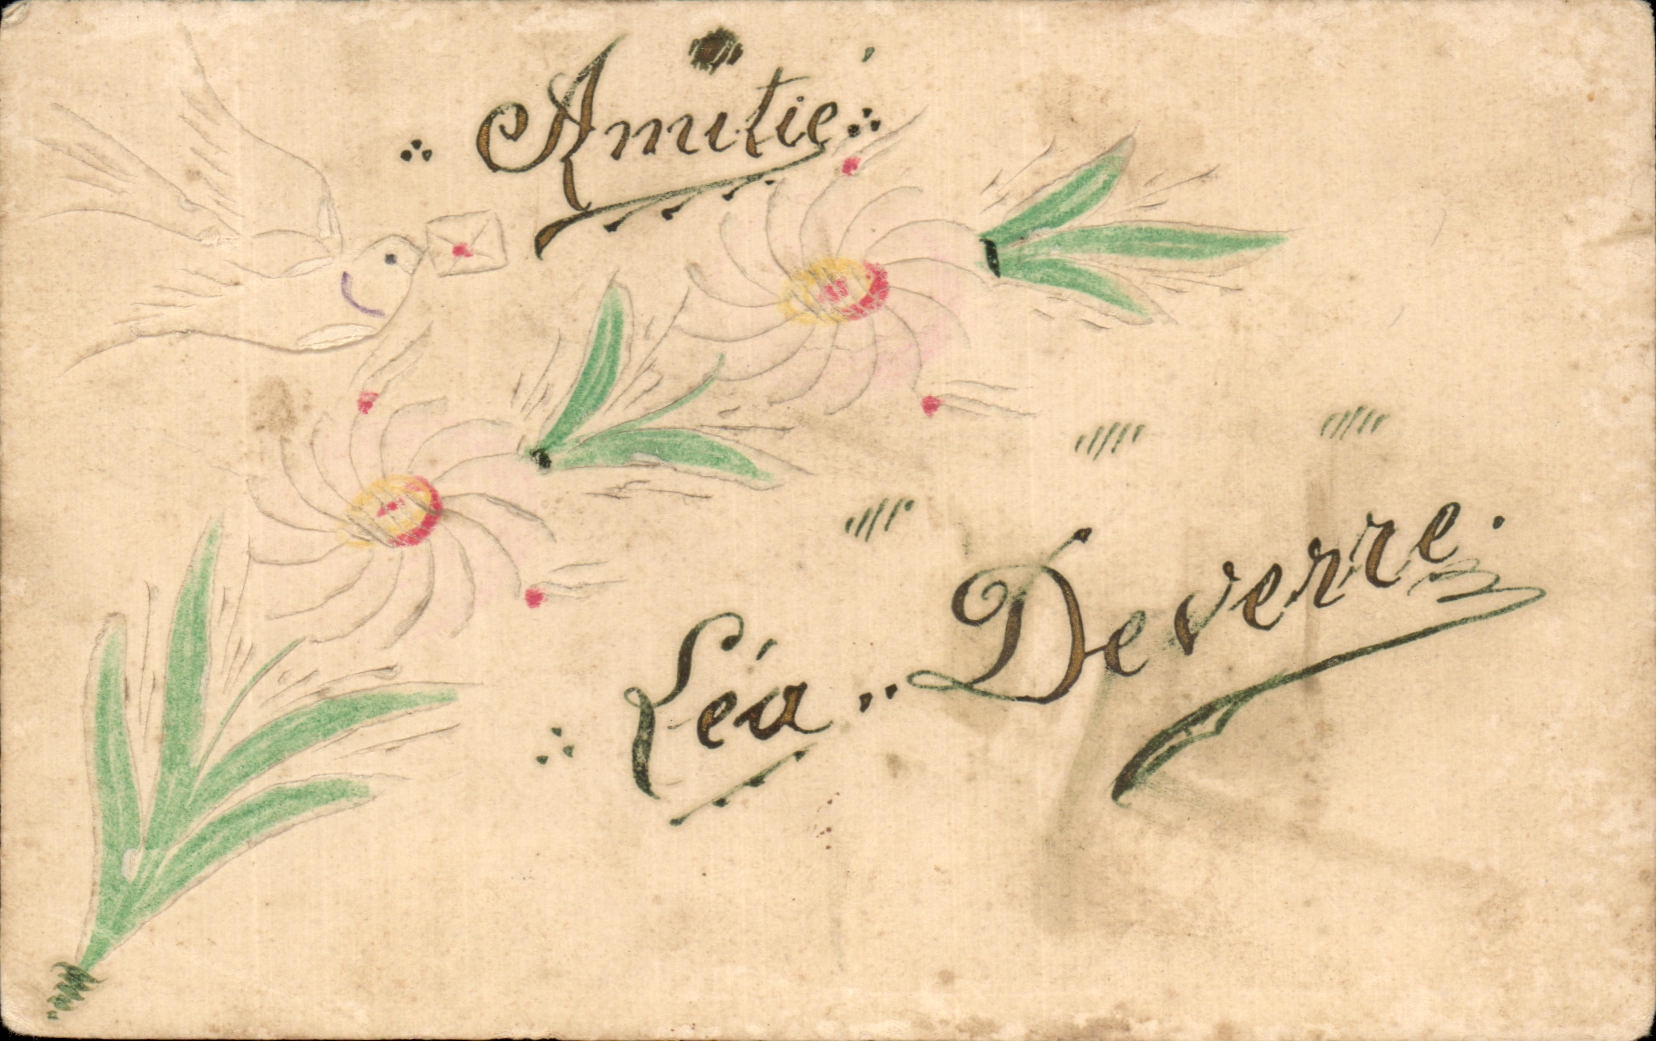 Amitié
Léa Deverre.